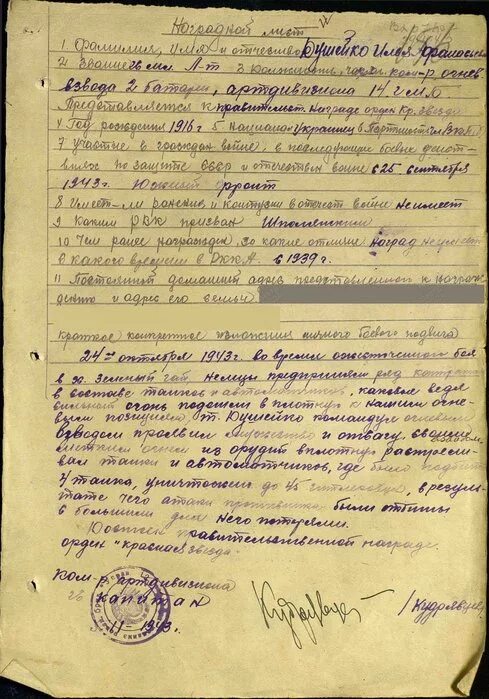 Наградной лист
1. Фамилия, имя и отчество Душейко Илья Афанасьев
2 Звание Мл. Л-т 3 должность, часть ком-р огнев
взвода 2 батареи, артдивизиона 14 гммб
Представляется к правительст. Награде орден Кр. Звезда
4 Год рождения 1916 г 5. национал Украинец 6 Партийность чл ВКП(б)
7 Участие в граждан войне, в последующих боевых дейст-
виях по защите СССР и отечествен войне с 25 сентября
1943 г. Южный фронт
8 Имеет-ли ранения и контузии в отечест войне Не имеет
9 Каким РВК призван Шполянским
10 Чем ранее награжден, за какие отличия Наград не имеет
с какого времени в РККА. с 1939 г.
11 Постоянный домашний адрес представляемого к награж-
дению и адрес его семьи
краткое конкретное изложения личного боевого подвига
24го октября 1943 г. во время ожесточенного боя
в х. Зеленый гай, Немцы предприняли ряд контратак
в составе танков и автоматчиков, каковые ведя
сильный огонь подошли в плотную к нашим огне-
вым позициям. Л-т. Душейко командуя огневым
взводом проявил мужество и отвагу, своим взводом,
метким огнем из орудий вплотную расстрели-
вал танки и автоматчиков, где было подбито
4 танка, уничтожено до 45 гитлеровцев, в резуль-
тате чего атаки противника были отбиты
с большими для Него потерями.
Достоин правительственной награде
орден "красная звезда"
ком-р артдивизиона
гв капитан
/Кудрявцев/
11-1943.